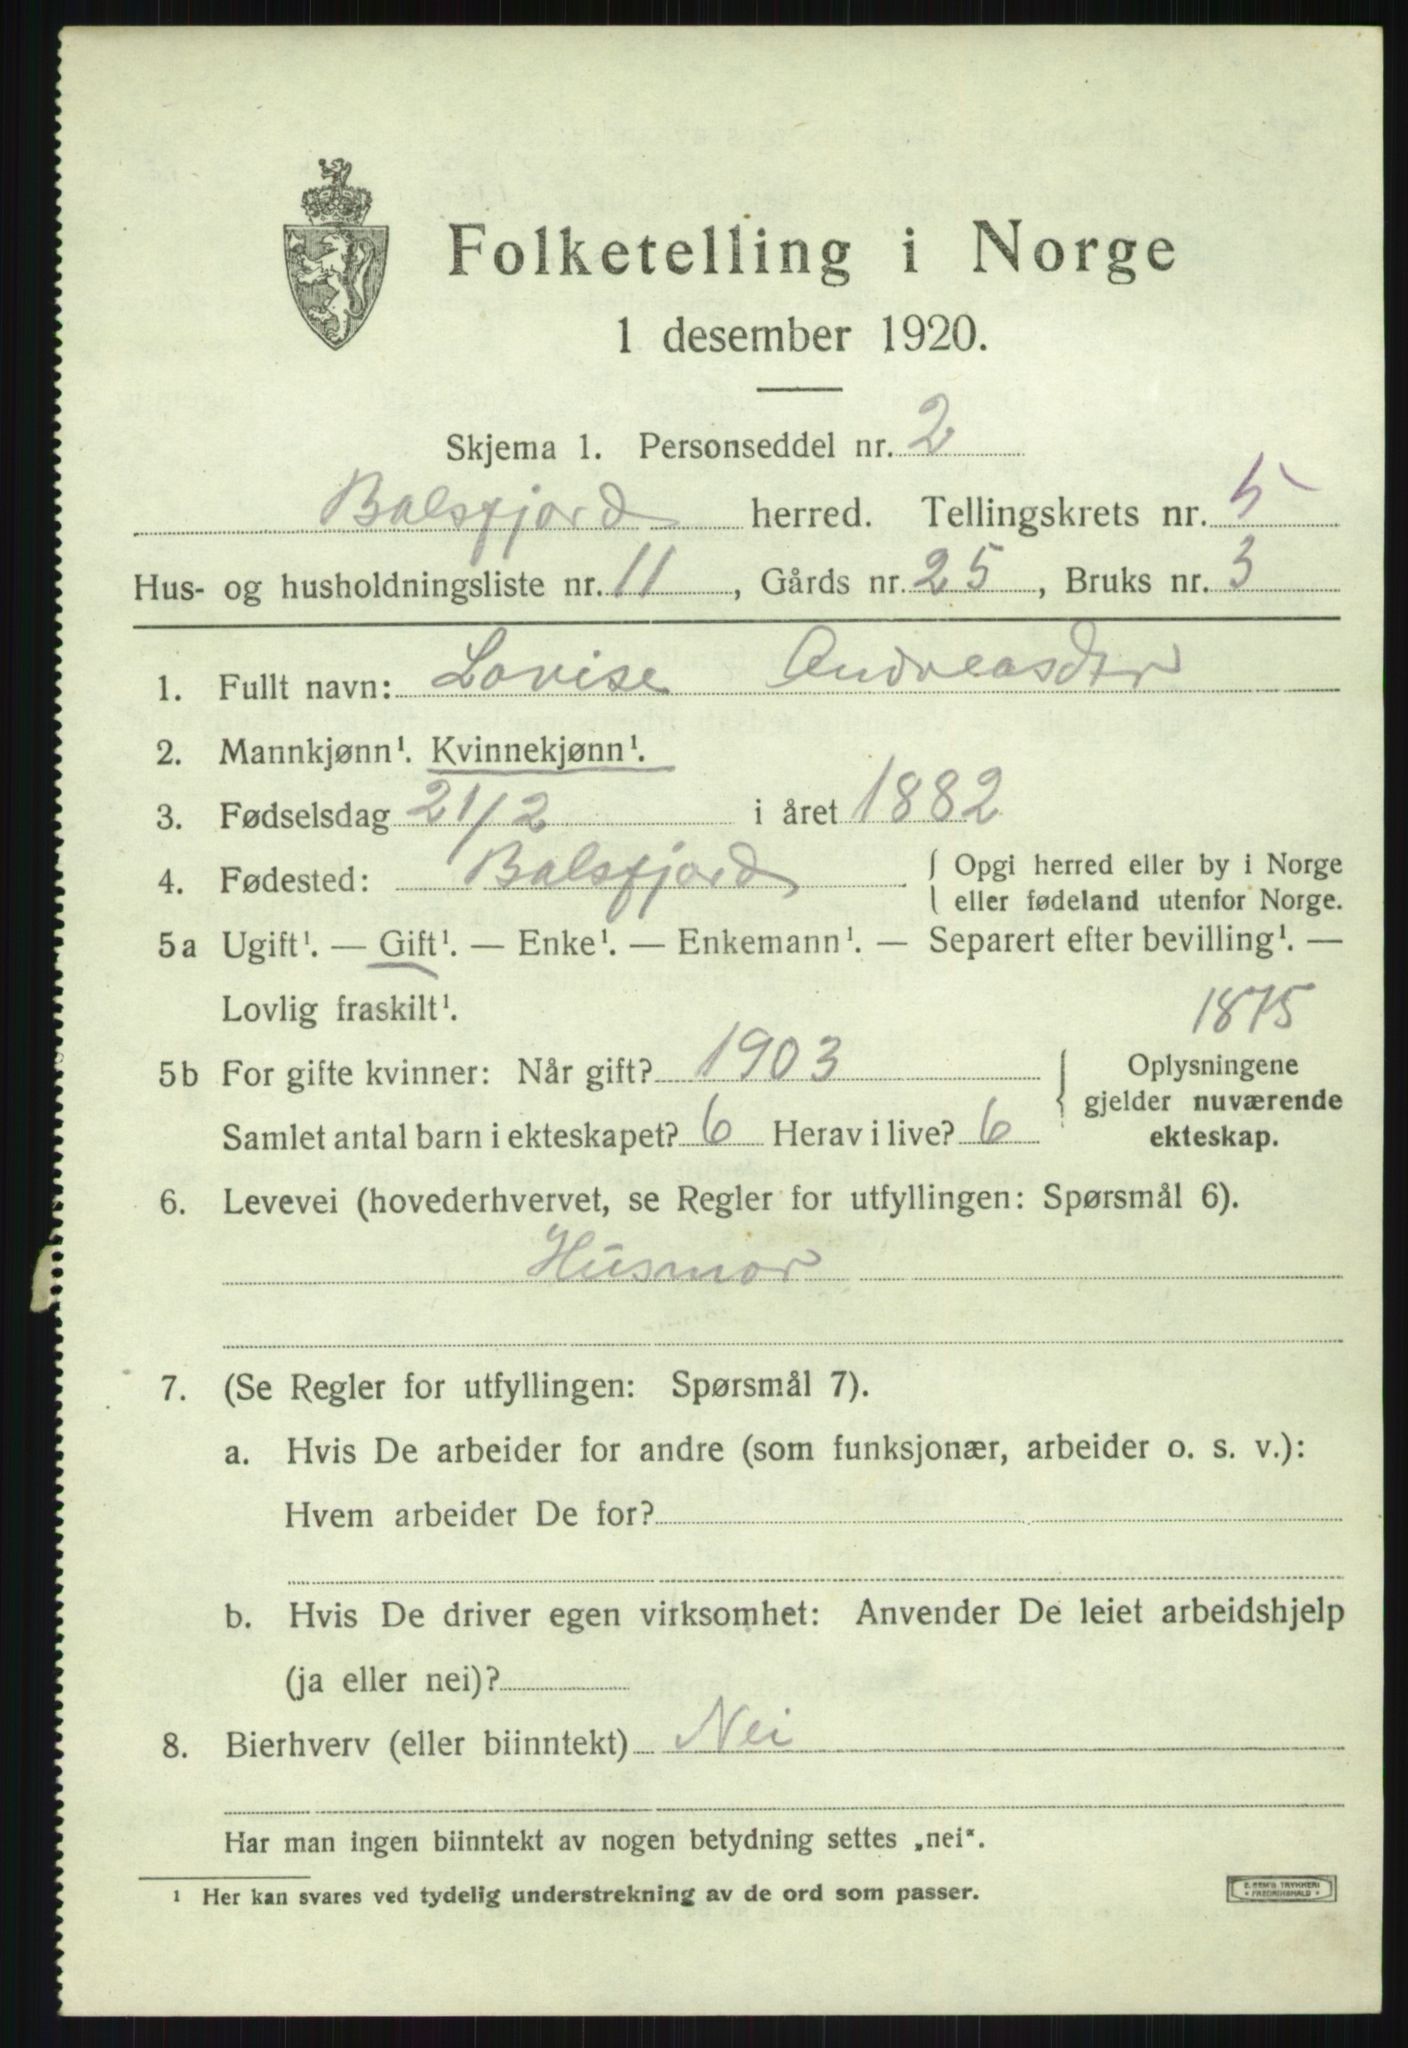 Folketelling i Norge
1 desember 1920.
Skjema 1. Personseddel nr. 2
Balsfjord herred. Tellingskrets nr. 5
Hus- og husholdningsliste nr. 11, Gårds nr. 25, Bruks nr. 3
1. Fullt navn: Lovise Andreasdtr
2. Mannkjønn¹. Kvinnekjønn¹.
3. Fødselsdag 21/2 i året 1882
4. Fødested: Balsfjord { Opgi herred eller by i Norge
eller fødeland utenfor Norge.
5a Ugift¹. — Gift¹. — Enke¹. — Enkemann¹. — Separert efter bevilling¹. —
Lovlig fraskilt¹.
1875
5b For gifte kvinner: Når gift? 1903
Samlet antal barn i ekteskapet? 6 Herav i live? 6
{ Oplysningene
gjelder nuværende
ekteskap.
6. Levevei (hovederhvervet, se Regler for utfyllingen: Spørsmål 6).
Husmor
7. (Se Regler for utfyllingen: Spørsmål 7).
a. Hvis De arbeider for andre (som funksjonær, arbeider o. s. v.):
Hvem arbeider De for?
b. Hvis De driver egen virksomhet: Anvender De leiet arbeidshjelp
(ja eller nei)?
8. Bierhverv (eller biinntekt) Nei
Har man ingen biinntekt av nogen betydning settes „nei“.
¹ Her kan svares ved tydelig understrekning av de ord som passer.
E. SEM'S TRYKKERI
• FREDRIKSHALD •